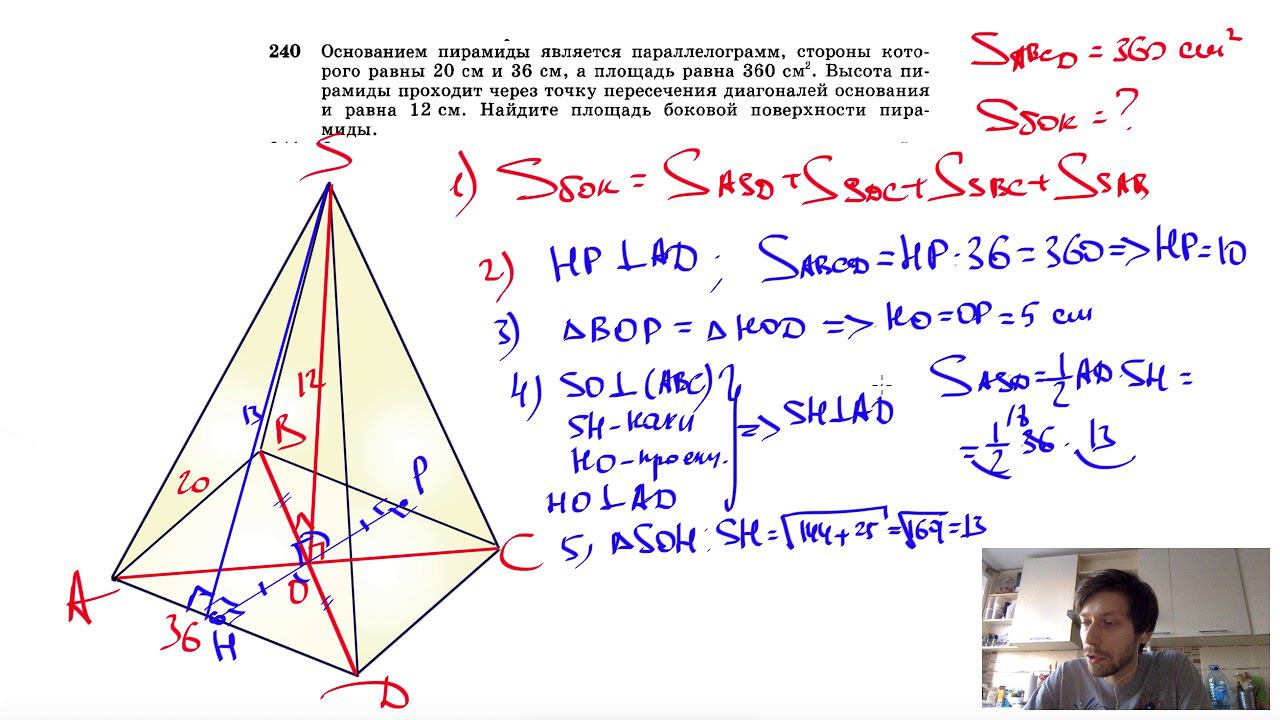 240 Основанием пирамиды является параллелограмм, стороны кото-
рого равны 20 см и 36 см, а площадь равна 360 см². Высота пи-
рамиды проходит через точку пересечения диагоналей основания
и равна 12 см. Найдите площадь боковой поверхности пира-
миды.
S_ABCD = 360 см²
Sбок = ?
1) Sбок = S_ASD + S_SDC + S_SBC + S_SAB
2) HP ⊥ AD ; S_ABCD = HP · 36 = 360 => HP = 10
3) △BOP = △HOD => HO = OP = 5 см
4) SO ⊥ (ABC)
SH - накл
HO - проекц.
HO ⊥ AD
=> SH ⊥ AD
5) △SOH : SH = √144 + 25 = √169 = 13
S_ASD = 1/2 AD · SH =
= 1/2 36 · 13
18
S
12
13
B
20
P
A
O
C
36
H
D